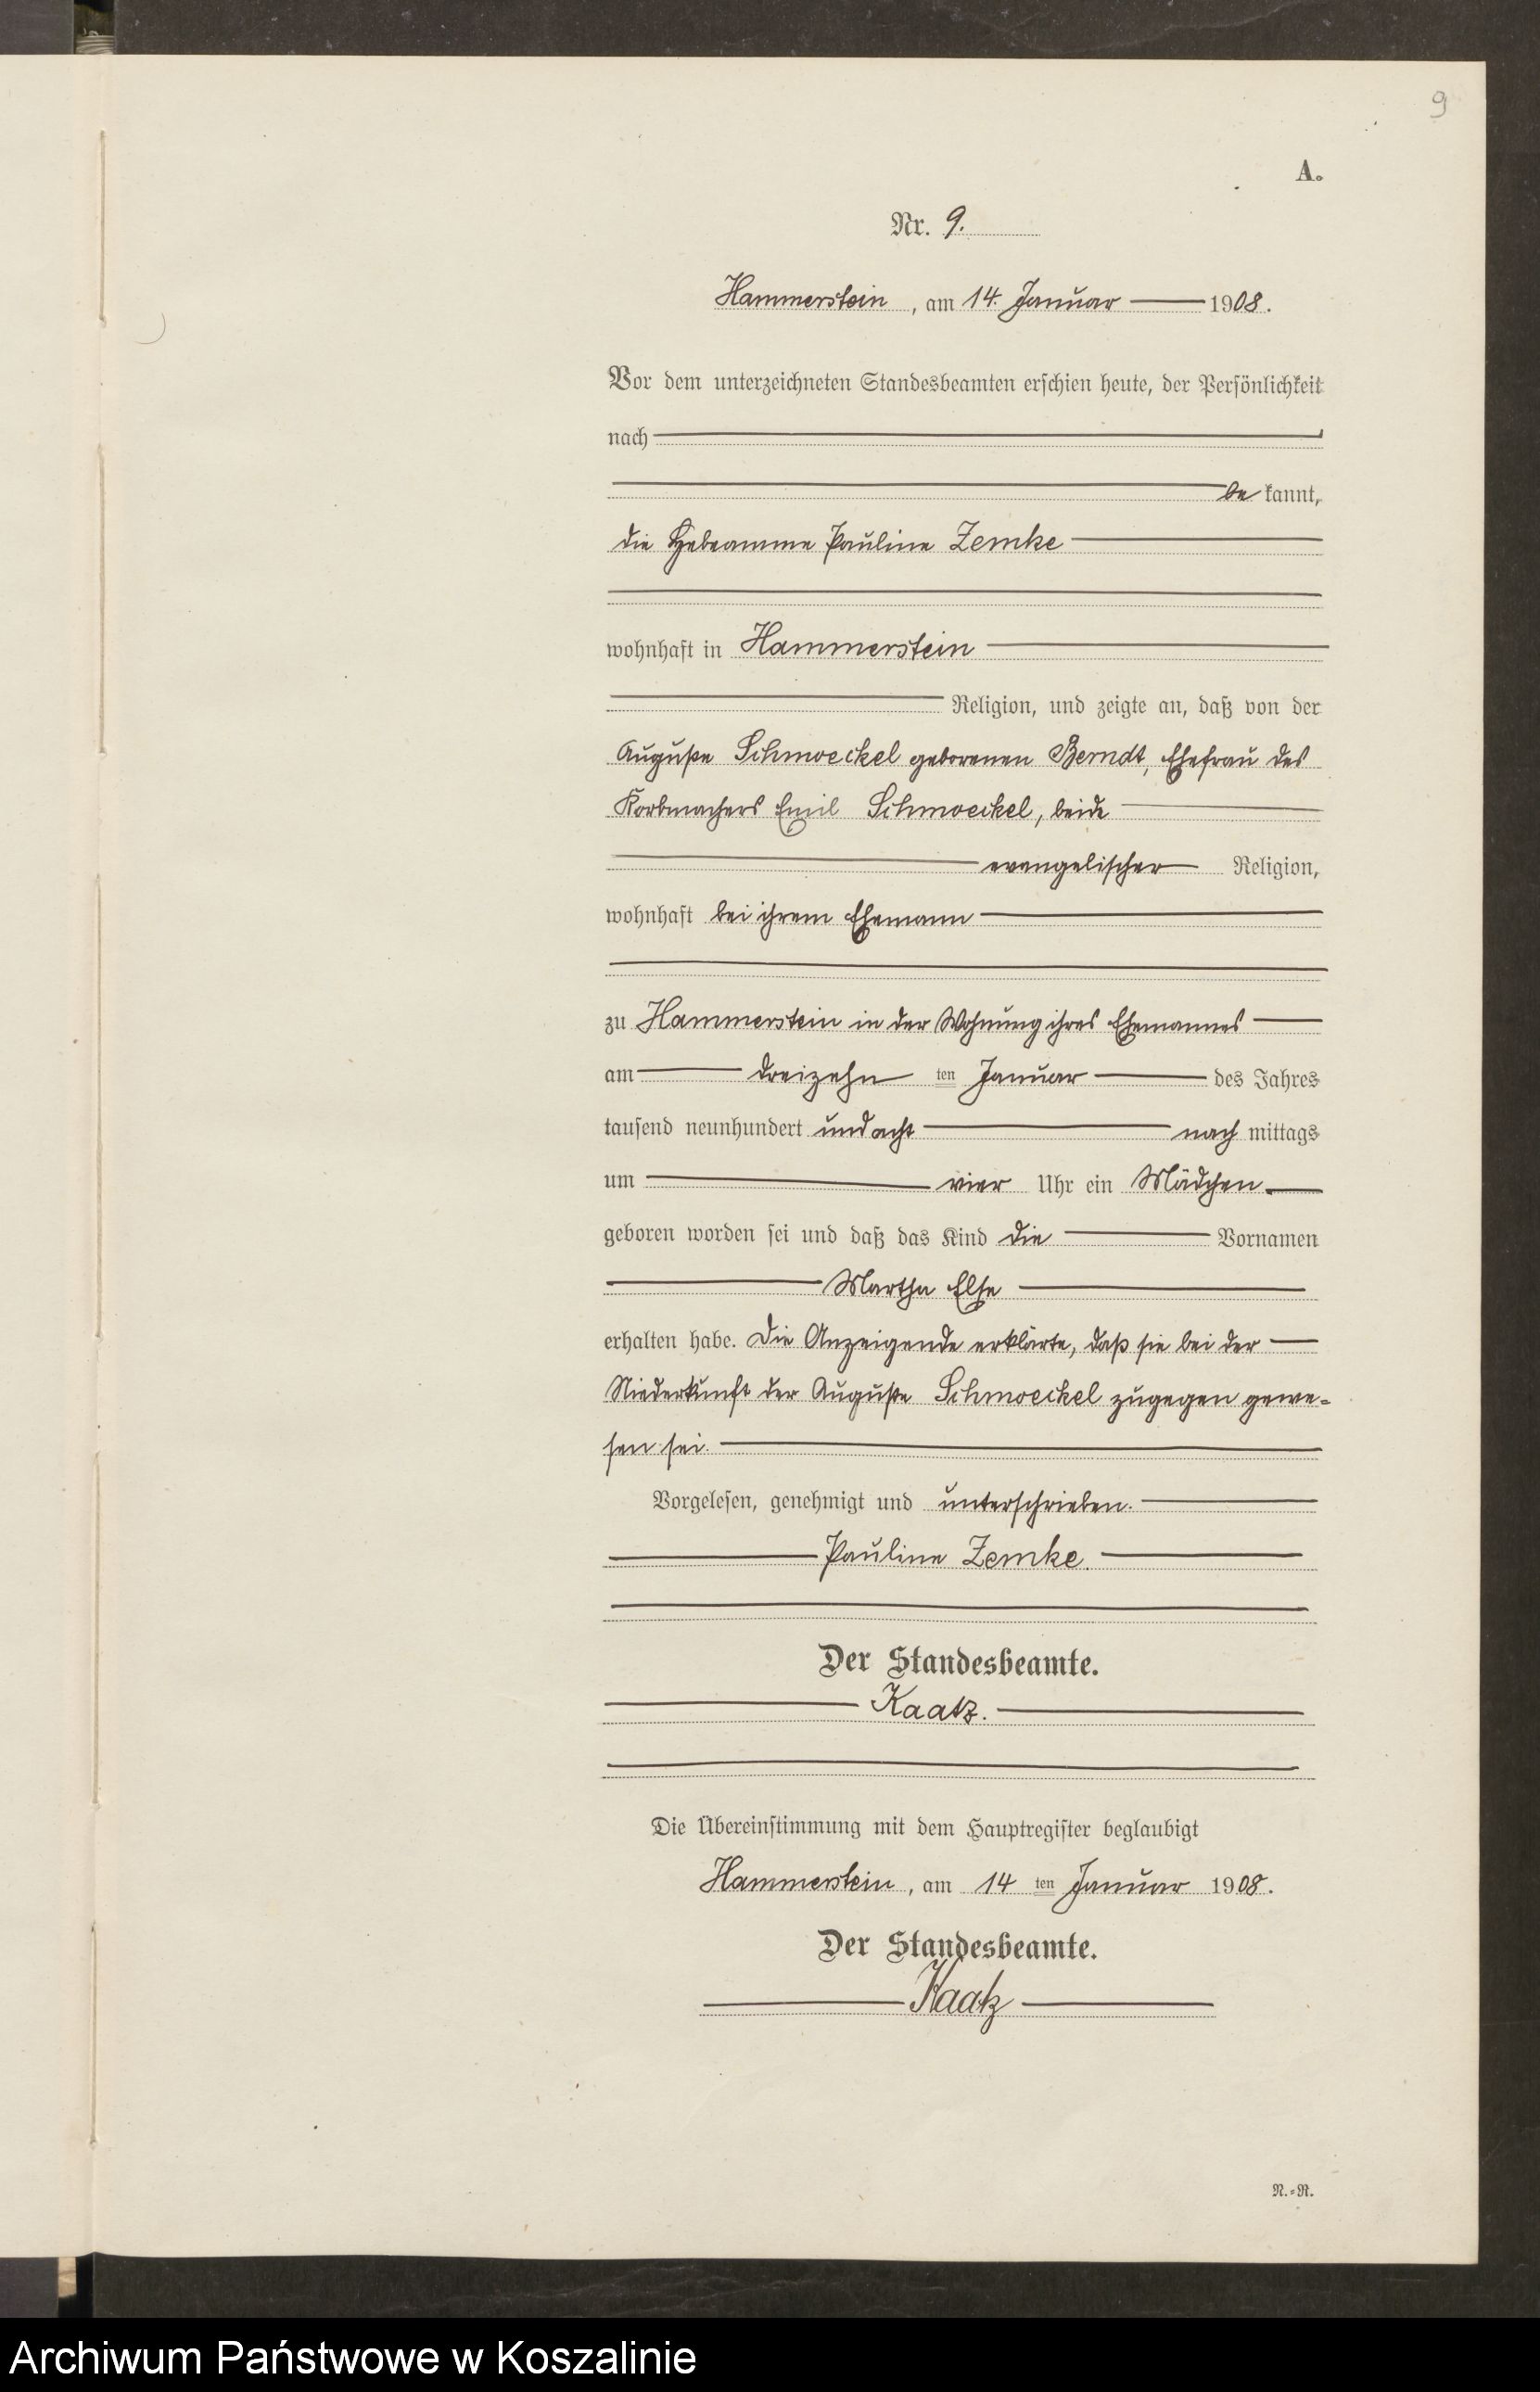 9
A.
Nr. 9.
Hammerstein, am 14. Januar 1908.
Vor dem unterzeichneten Standesbeamten erschien heute, der Persönlichkeit
nach
be kannt,
die Hebeamme Pauline Zemke
wohnhaft in Hammerstein
Religion, und zeigte an, daß von der
Auguste Schmoeckel geborenen Berndt, Ehefrau des
Korbmachers Emil Schmoeckel, beide
evangelischer Religion,
wohnhaft bei ihrem Ehemann
zu Hammerstein in der Wohnung ihres Ehemannes
am dreizehn ten Januar des Jahres
tausend neunhundert und acht nach mittags
um vier Uhr ein Mädchen
geboren worden sei und daß das Kind die Vornamen
Martha Else
erhalten habe. Die Anzeigende erklärte, daß sie bei der
Niederkunft der Auguste Schmoeckel zugegen gewe=
sen sei.
Vorgelesen, genehmigt und unterschrieben.
Pauline Zemke.
Der Standesbeamte.
Kaatz.
Die Übereinstimmung mit dem Hauptregister beglaubigt
Hammerstein, am 14 ten Januar 1908.
Der Standesbeamte.
Kaatz
N.=R.
Archiwum Państwowe w Koszalinie